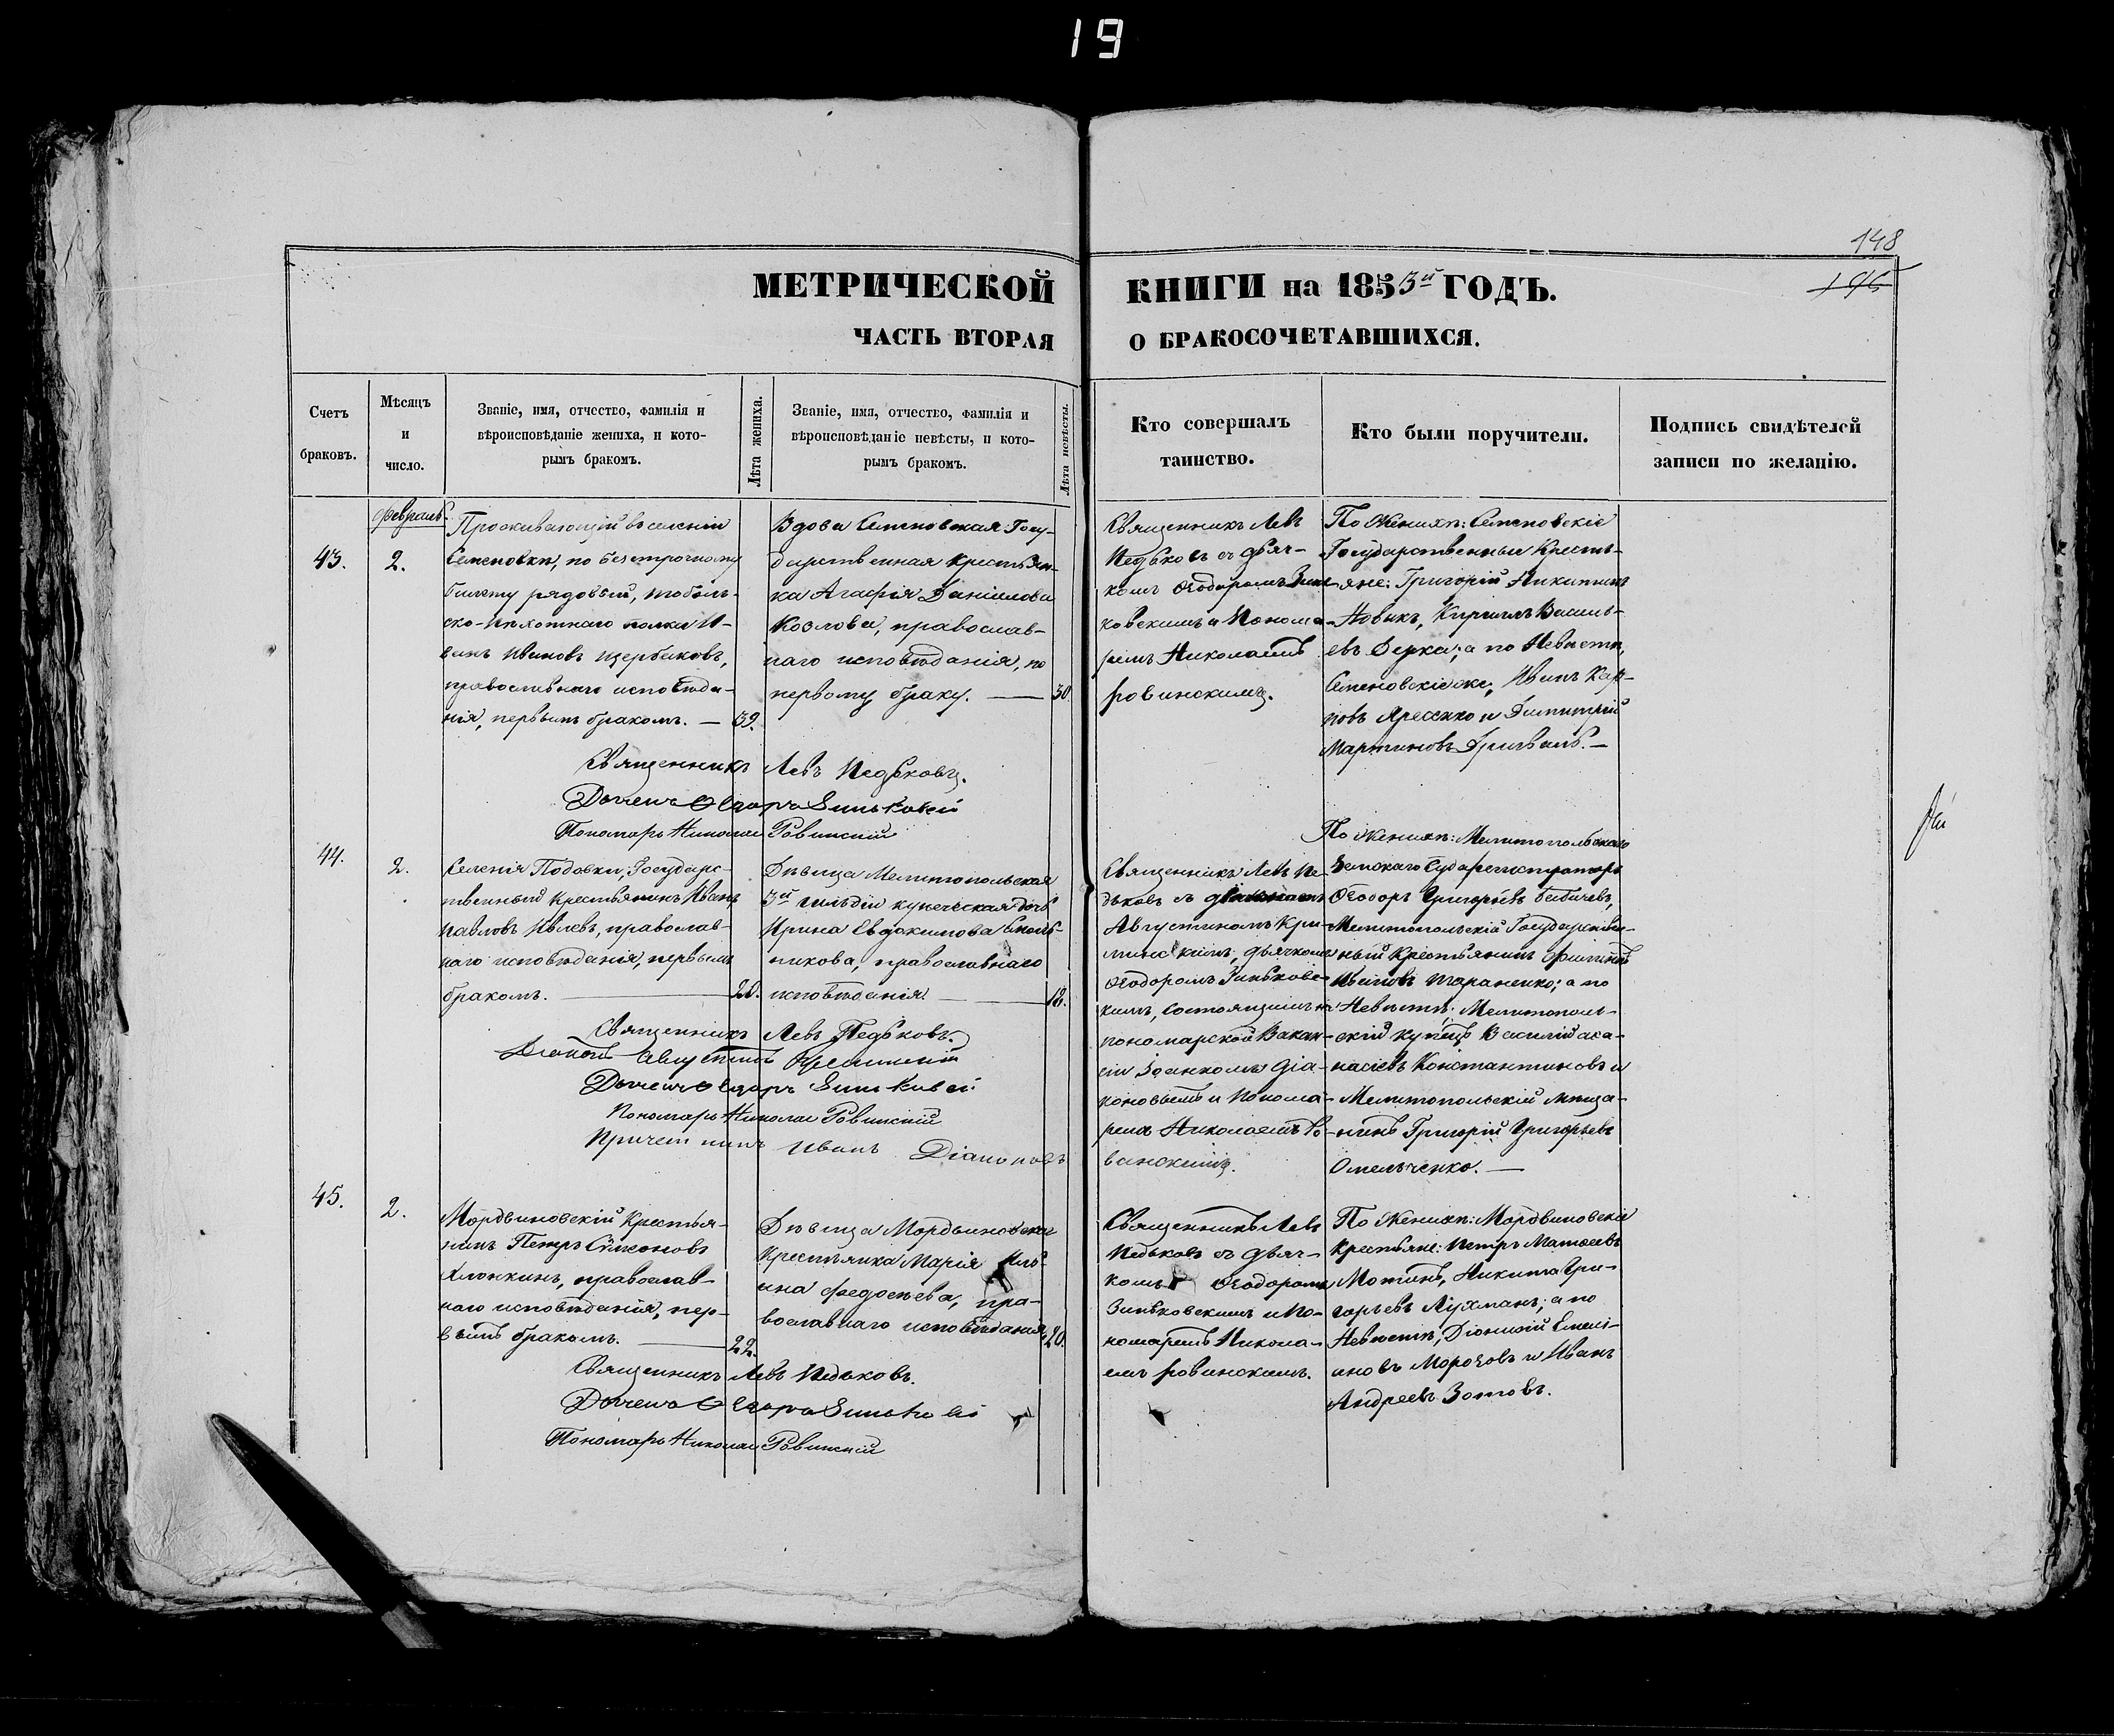 19
148
196
МЕТРИЧЕСКОЙ КНИГИ на 1853й ГОДЪ.
ЧАСТЬ ВТОРАЯ О БРАКОСОЧЕТАВШИХСЯ.
Счетъ
браковъ.
Мѣсяцъ
и
число.
Званіе, имя, отчество, фамилія и
вѣроисповѣданіе жениха, и кото-
рымъ бракомъ.
Лѣта жениха.
Званіе, имя, отчество, фамилія и
вѣроисповѣданіе невѣсты, и кото-
рымъ бракомъ.
Лѣта невѣсты.
Кто совершалъ
таинство.
Кто были поручители.
Подпись свидѣтелей
записи по желанію.
февраль
43.
2.
Проживающій въ селеніи
Семеновки, по безсрочному
билету рядовый, тоболь-
ско-пѣхотнаго полка И-
ванъ Ивановъ Щербаковъ,
православнаго исповѣда-
нія, первымъ бракомъ. —
39.
Вдова Семеновская Госу-
дарственная крестьян-
ка Агафія Даніилова
Козлова, православ-
наго исповѣданія, по
первому браку. —
30
Священникъ Левъ
Педьковъ съ дьяч-
комъ Ѳеодоромъ Зинь-
ковскимъ и Понома-
ремъ Николаемъ
Ровинскимъ.
По Женихѣ: Семеновскіе
Государственные Кресть-
яне: Григорій Никитинъ
Новикъ, Кириллъ Василь-
евъ Дерка; а по Невѣстѣ,
Семеновскіе же, Иванъ Кар-
повъ Яресько и Димитрій
Мартиновъ —
Священникъ Левъ Педьковъ.
Дьячекъ Ѳеодоръ Зиньковскій
Пономарь Николай Ровинскій
44.
2.
Селенія Подовки, Государс-
твенный Крестьянинъ Иванъ
Павловъ Ивлевъ, православ-
наго исповѣданія, первымъ
бракомъ. —
20.
Дѣвица Мелитопольская
3й гильдіи купеческая дочь
Ирина Евдокимова
никова, православнаго
исповѣданія —
18.
Священникъ Левъ Пе-
дьковъ съ діакономъ
Августиномъ Кри-
минскимъ, дьячкомъ
Ѳеодоромъ Зиньковс-
кимъ, состоящимъ на
пономарской Вакан-
сіи Іоанномъ Діа-
коновымъ и Понома-
ремъ Николаемъ Ро-
винскимъ.
По Женихѣ: Мелитопольскаго
Земскаго Суда регистраторъ
Ѳеодоръ Григорьевъ Бибичевъ,
Мелитопольскій Государствен-
ный Крестьянинъ Филиппъ
Ивановъ Тараненко; а по
Невѣстѣ: Мелитополь-
скій купецъ Василій Аѳа-
насіевъ Константиновъ и
Мелитопольскій мѣща-
нинъ Григорій Григорьевъ
Омельченко. —
Священникъ Левъ Педьковъ.
Діаконъ Августинъ Криминскій
Дьячекъ Ѳеодоръ Зиньковскій
Пономарь Николай Ровинскій
Причетникъ Иванъ Діаконовъ
45.
2.
Мордвиновскій Крестья-
нинъ Петръ Симеоновъ
Хлопкинъ, православ-
наго исповѣданія, пер-
вымъ бракомъ. —
22.
Дѣвица Мордвиновская
Крестьянка Марія Иль-
ина Федосѣева, пра-
вославнаго исповѣданія,
20.
Священникъ Левъ
Педьковъ съ дьяч-
комъ Ѳеодоромъ
Зиньковскимъ и По-
номаремъ Никола-
емъ Ровинскимъ.
По Женихѣ: Мордвиновскіе
Крестьяне: Петръ Матѳеевъ
Мотинъ, Никита Гри-
горьевъ Лухманъ; а по
Невѣстѣ, Діонисій Емелі-
ановъ Морозовъ и Иванъ
Андреевъ Зотовъ.
Священникъ Левъ Педьковъ.
Дьячекъ Ѳеодоръ Зиньковскій
Пономарь Николай Ровинскій